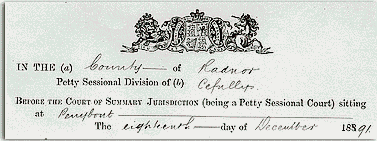 IN THE (a) County — of Radnor
Petty Sessional Division of (b) Cefnllys.
BEFORE THE COURT OF SUMMARY JURISDICTION (being a Petty Sessional Court) sitting
at Penybont
The eighteenth — day of December 1891.